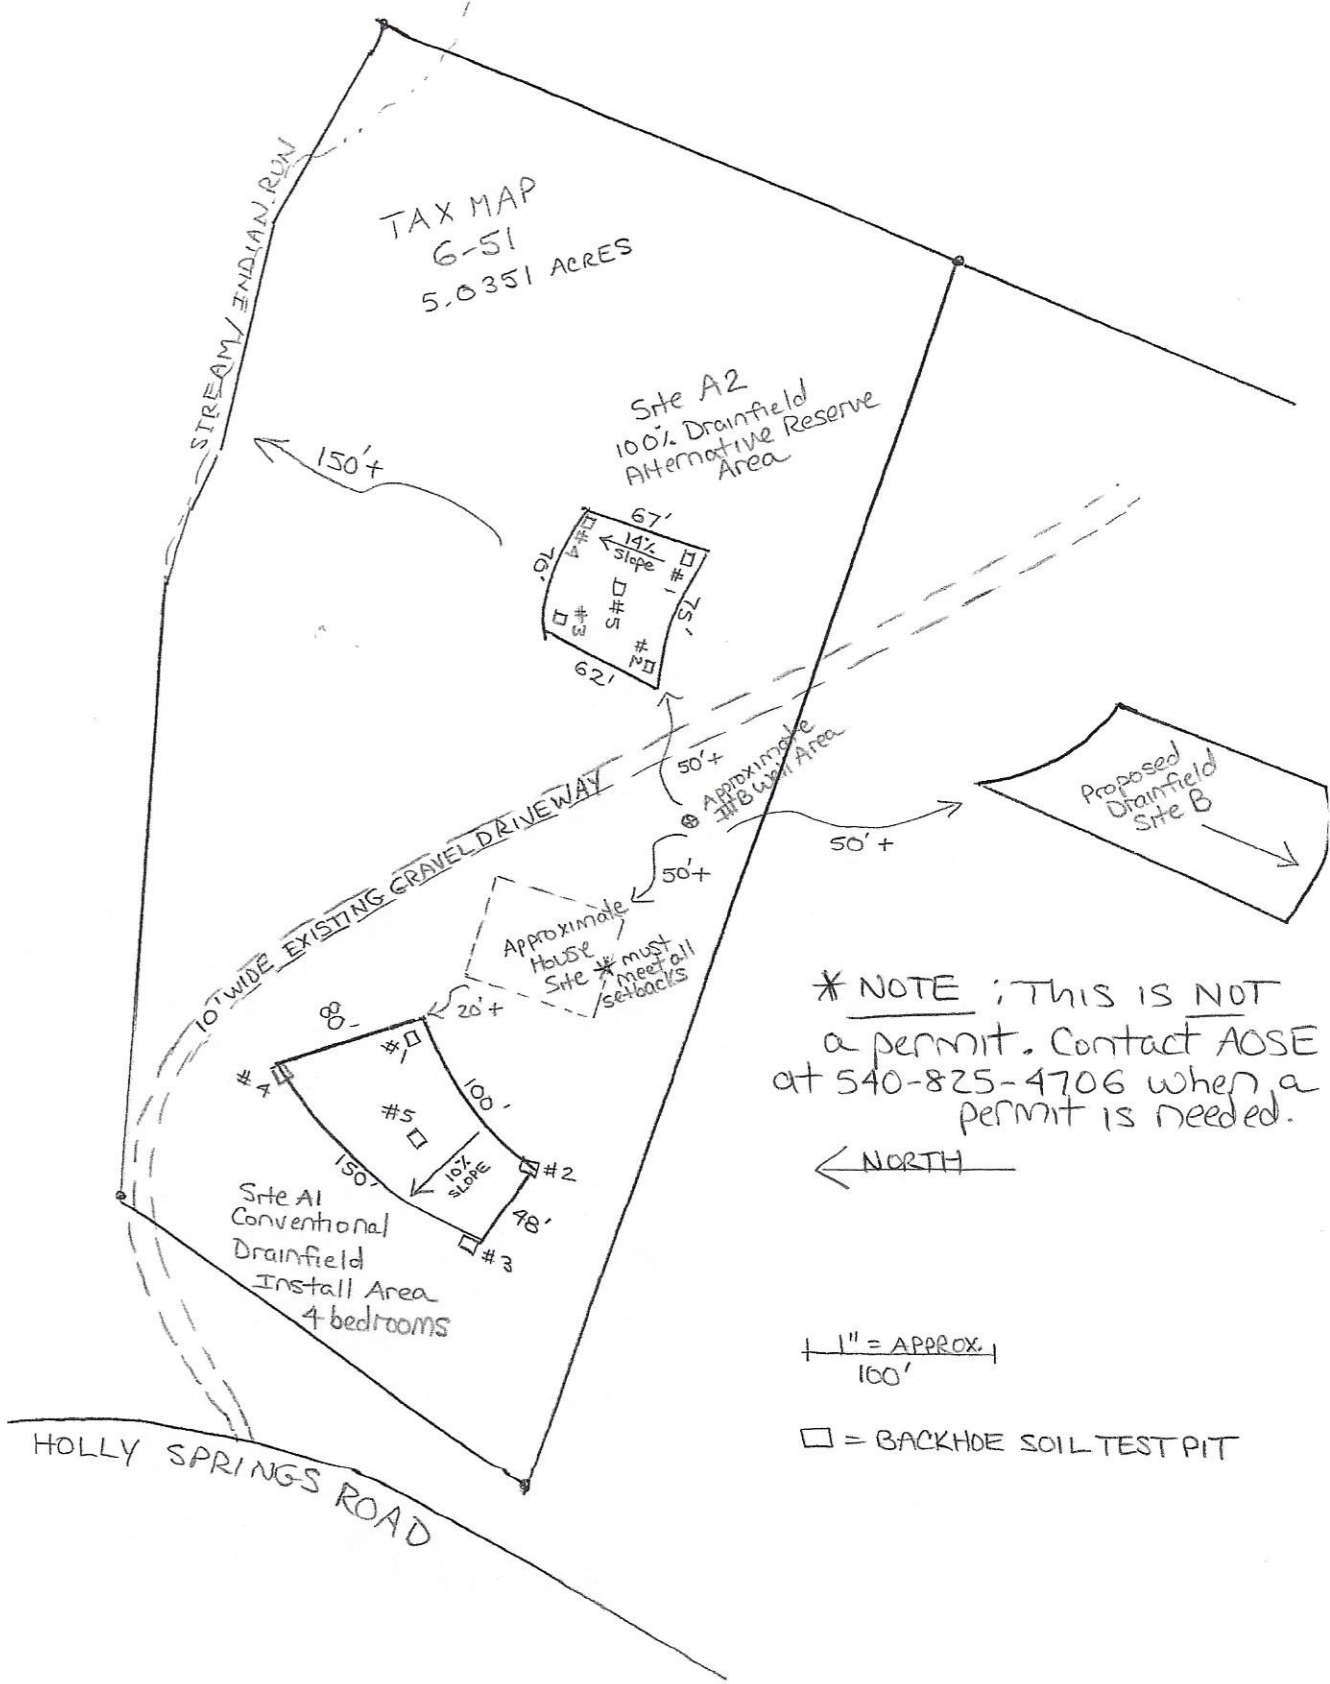 STREAM/INDIAN RUN
TAX MAP
6-51
5.0351 ACRES
Site A2
100% Drainfield
Alternative Reserve
Area
150'+
67'
14%
Slope
70'
75'
62'
#4
#1
#5
#3
#2
50'+
Approximate
IIIB Well Area
50'+
50'+
Proposed
Drainfield
Site B
10' WIDE EXISTING GRAVEL DRIVEWAY
Approximate
House
Site * must
meet all
setbacks
20'+
80'
#1
#4
100'
#5
150'
10%
SLOPE
#2
48'
#3
Site A1
Conventional
Drainfield
Install Area
4 bedrooms
* NOTE : THIS IS NOT
a permit. Contact AOSE
at 540-825-4706 when a
permit is needed.
NORTH
1" = APPROX.
100'
= BACKHOE SOIL TEST PIT
HOLLY SPRINGS ROAD